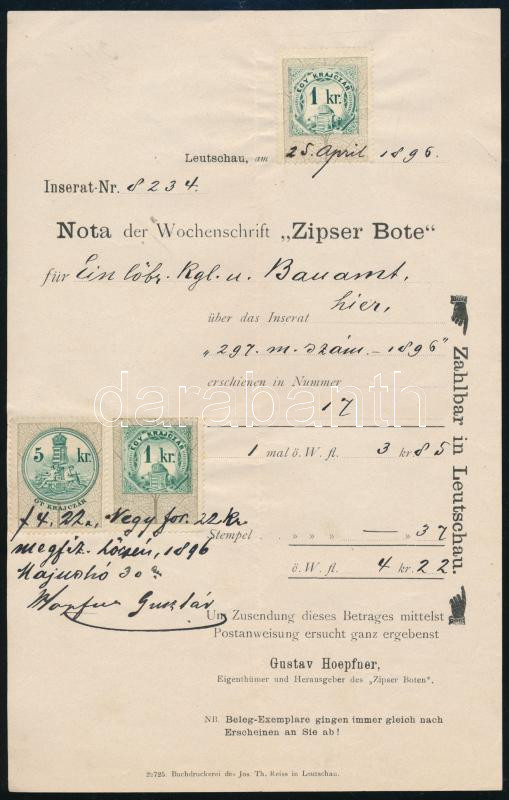 EGY KRAJCZÁR
1 kr.
Leutschau, am 25. April 1896.
Inserat-Nr. 8234.
Nota der Wochenschrift „Zipser Bote“
für Ein löbl. Kgl. u. Bauamt,
hier,
über das Inserat
„297. m. szám. – 1896“
erschienen in Nummer
17
1 mal ö. W. fl. 3 kr 85
Stempel „ „ „ — „ 37
ö. W. fl. 4 kr. 22
Zahlbar in Leutschau.
5 kr.
ÖT KRAJCZÁR
EGY KRAJCZÁR
1 kr.
f 4. 22, Negy for. 22 kr
megfiz. Lőcsén, 1896
Majushó 30
Gusztáv
Um Zusendung dieses Betrages mittelst
Postanweisung ersucht ganz ergebenst
Gustav Hoepfner,
Eigenthümer und Herausgeber des „Zipser Boten“.
NB. Beleg-Exemplare gingen immer gleich nach
Erscheinen an Sie ab!
Buchdruckerei des Jos. Th. Reiss in Leutschau.
darabanth